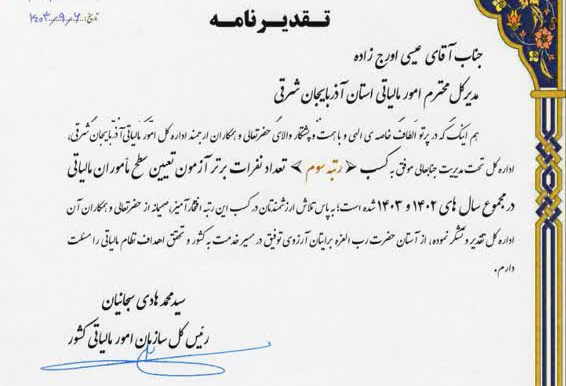 تقدیرنامه
تاریخ: ۱۴۰۳،۹،۶
جناب آقای عیسی اورج زاده
مدیرکل محترم امور مالیاتی استان آذربایجان شرقی
هم اینک که در پرتو الطاف خاصه ی الهی و با همت و پشتکار والای حضرتعالی و همکاران ارجمند اداره کل امور مالیاتی آذربایجان شرقی،
اداره کل تحت مدیریت جنابعالی موفق به کسب < رتبه سوم > تعداد نفرات برتر آزمون تعیین سطح مأموران مالیاتی
در مجموع سال های ۱۴۰۲ و ۱۴۰۳ شده است؛ به پاس تلاش ارزشمندتان در کسب این رتبه افتخارآمیز، صمیمانه از حضرتعالی و همکاران آن
اداره کل تقدیر و تشکر نموده، از آستان حضرت رب العزه برایتان آرزوی توفیق در مسیر خدمت به کشور و تحقق اهداف نظام مالیاتی را مسئلت
دارم.
سید محمد هادی سبحانیان
رئیس کل سازمان امور مالیاتی کشور